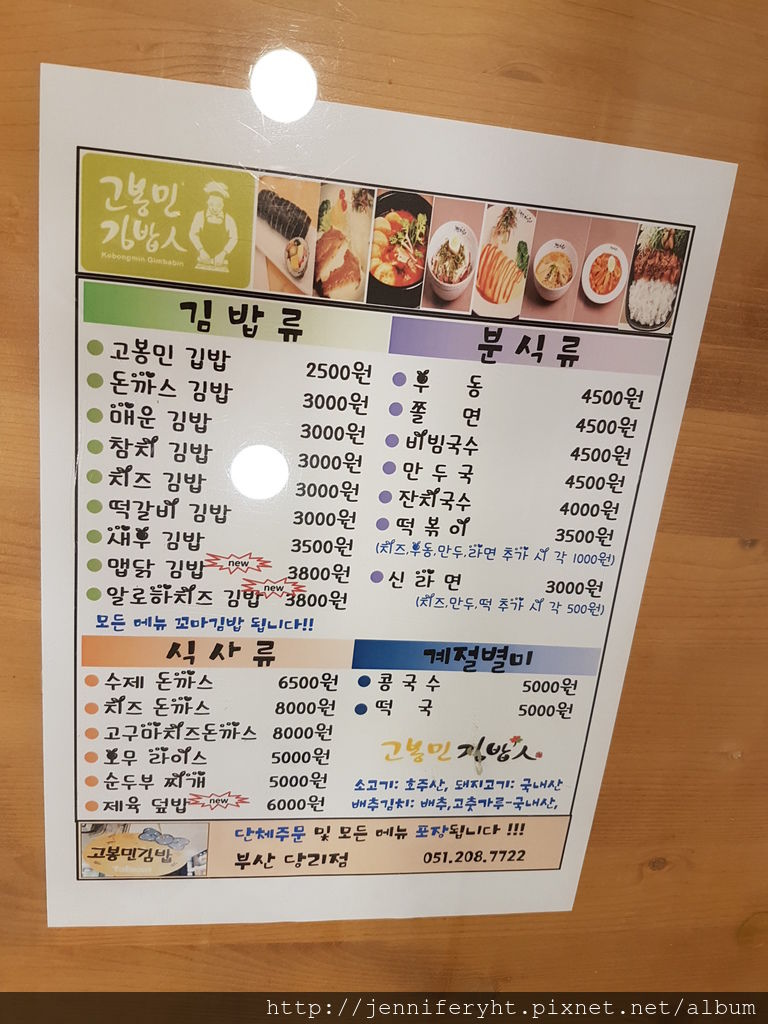 고봉민
김밥人
Kobongmin Gimbabin
김밥류
고봉민 김밥 2500원
돈까스 김밥 3000원
매운 김밥 3000원
참치 김밥 3000원
치즈 김밥 3000원
떡갈비 김밥 3000원
새우 김밥 3500원
맵닭 김밥 new 3800원
알로하치즈 김밥 new 3800원
모든 메뉴 꼬마김밥 됩니다!!
분식류
우동 4500원
쫄면 4500원
비빔국수 4500원
만두국 4500원
잔치국수 4000원
떡볶이 3500원
(치즈,우동,만두,라면 추가 시 각 1000원)
신라면 3000원
(치즈,만두,떡 추가 시 각 500원)
식사류
수제 돈까스 6500원
치즈 돈까스 8000원
고구마치즈돈까스 8000원
오무 라이스 5000원
순두부 찌개 5000원
제육 덮밥 new 6000원
계절별미
콩국수 5000원
떡국 5000원
고봉민김밥人
소고기: 호주산, 돼지고기: 국내산
배추김치: 배추,고춧가루-국내산,
고봉민김밥
단체주문 및 모든 메뉴 포장됩니다 !!!
부산 당리점 051.208.7722
http://jenniferyht.pixnet.net/album